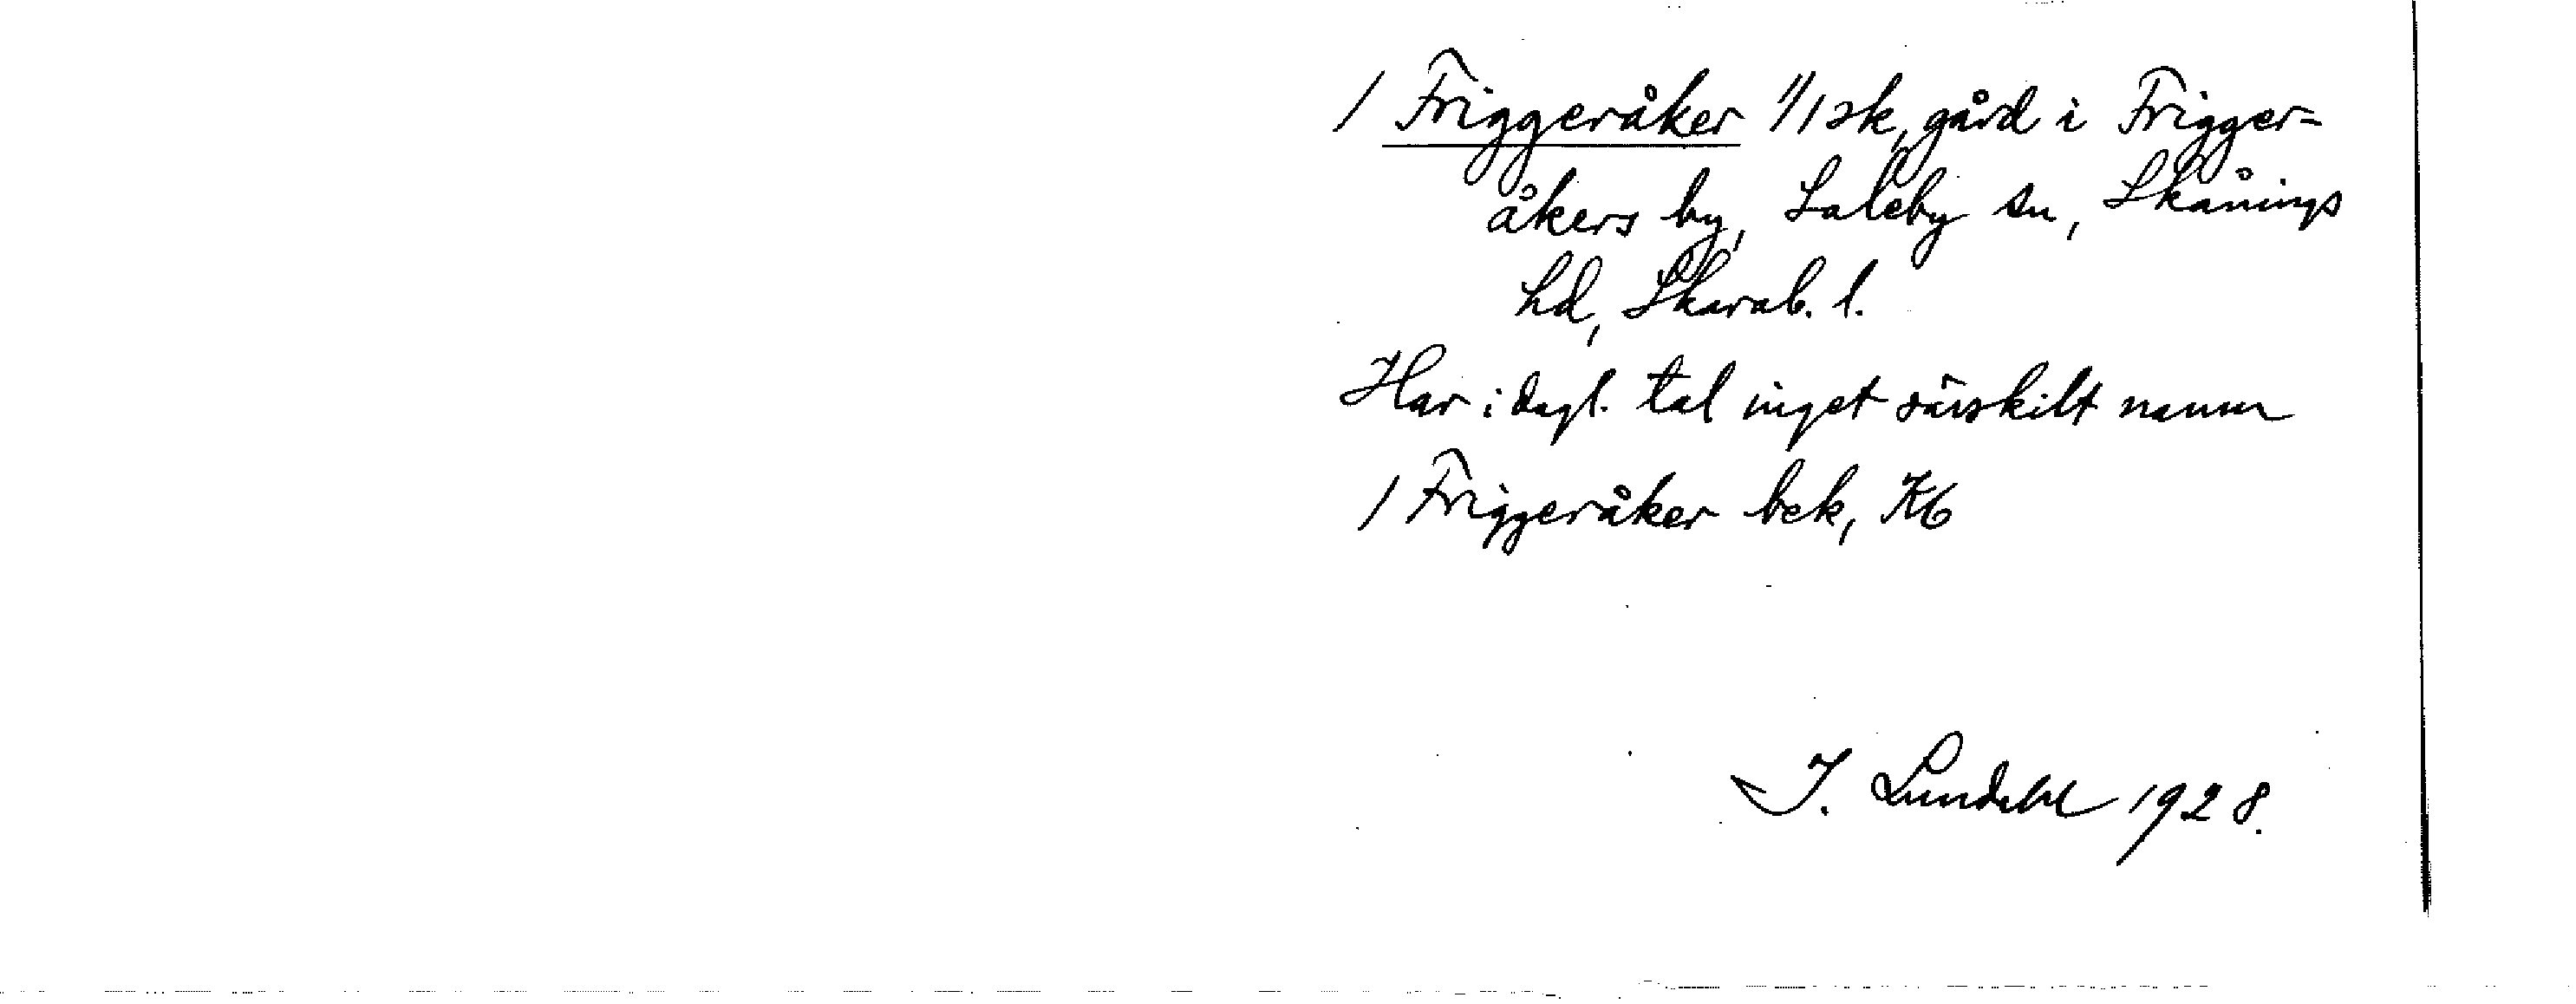 / Friggeråker 1/1 sk, gård i Frigger-
åkers by, Saleby sn, Skånings
hd, Skarab. l.
Har i dagl. tal inget särskilt namn
/ Friggeråker bek, Kb
I. Lundahl 1928.